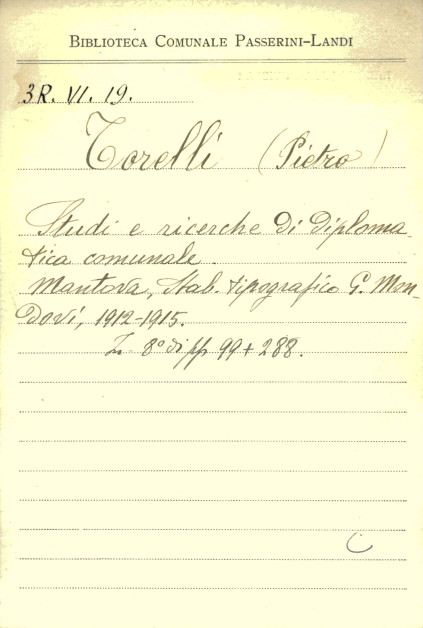 BIBLIOTECA COMUNALE PASSERINI-LANDI
3R. VI. 19.
Torelli (Pietro)
Studi e ricerche di diploma-
tica comunale.
Mantova, Stab. tipografico G. Mon-
dovì, 1912-1915.
In 8° di pp 99 + 288.